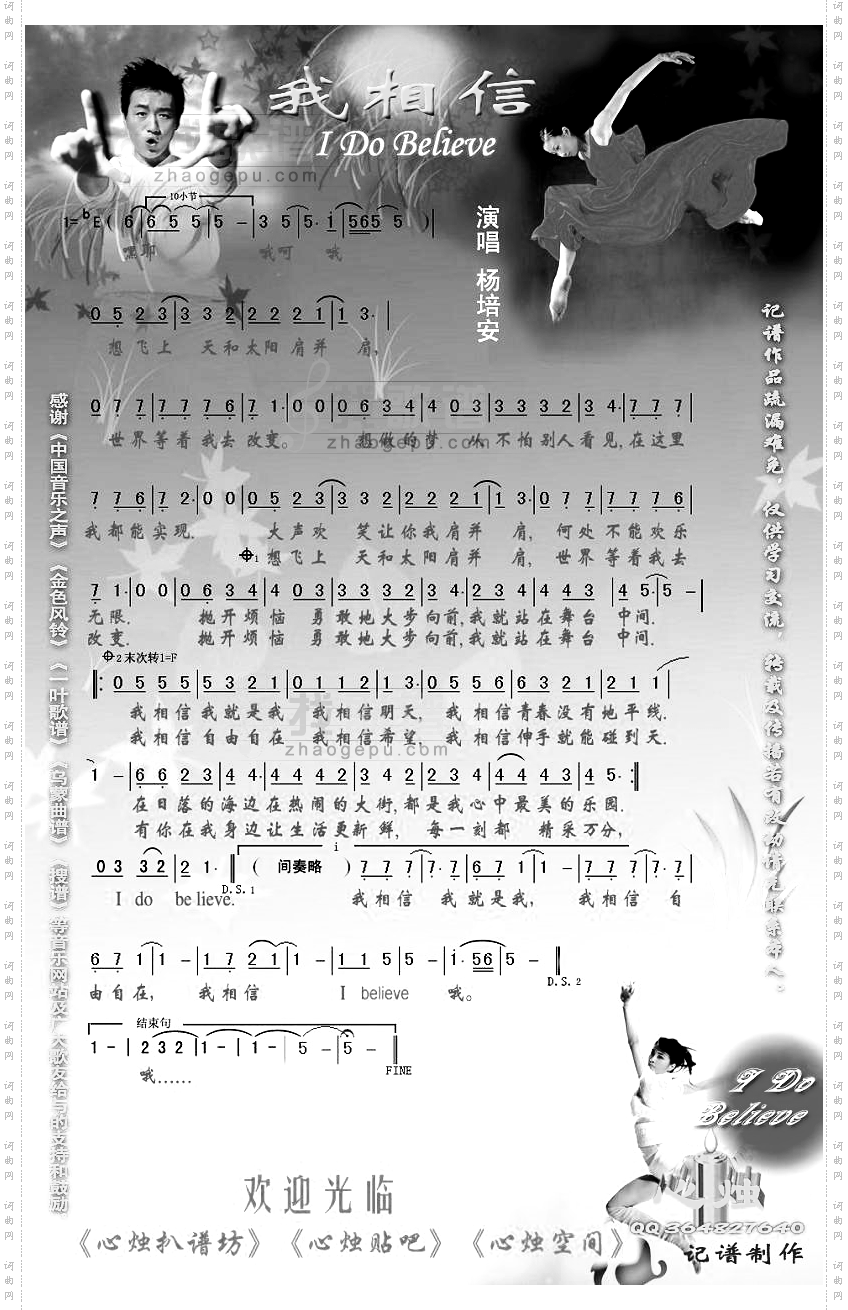 我相信
I Do Believe
zhaogepu.com
演唱 杨培安
10小节
1=bE ( 6 6 5 5 5 - 3 5 5· i 565 5 )
嘿耶 哦呵 哦
0 5 2 3 3 3 2 2 2 2 1 1 3·
想飞上 天和太阳肩并 肩,
0 7 7 7 7 7 6 7 1· 0 0 0 6 3 4 4 0 3 3 3 3 2 3 4· 7 7 7
世界等着我去改变。 想做的梦 从不怕别人看见,在这里
zhaogepu.com
7 7 6 7 2· 0 0 0 5 2 3 3 3 2 2 2 2 1 1 3· 0 7 7 7 7 7 6
我都能实现. 大声欢 笑让你我肩并 肩, 何处不能欢乐
1 想飞上 天和太阳肩并 肩, 世界等着我去
7 1· 0 0 0 6 3 4 4 0 3 3 3 3 2 3 4· 2 3 4 4 4 3 4 5· 5 -
无限. 抛开烦恼 勇敢地大步向前,我就站在舞台 中间.
改变. 抛开烦恼 勇敢地大步向前,我就站在舞台 中间.
2 末次转1=F
0 5 5 5 5 3 2 1 0 1 1 2 1 3· 0 5 5 6 6 3 2 1 2 1 1
我相信我就是我 我相信明天, 我相信青春没有地平线.
我相信自由自在 我相信希望, 我相信伸手就能碰到天.
zhaogepu.com
1 - 6 6 2 3 4 4· 4 4 4 2 3 4 2 2 3 4 4 4 2 3 4 5·
在日落的海边在热闹的大街,都是我心中最美的乐园.
有你在我身边让生活更新鲜, 每一刻都 精采万分,
0 3 3 2 2 1· ( 间奏略 ) 7 7 7 7· 7 6 7 1 1 - 7 7 7 7· 7
D.S.1
I do be lieve. 我相信 我就是我, 我相信 自
6 7 1 1 - 1 7 2 1 1 - 1 1 5 5 - 1· 56 5 -
D.S.2
由自在, 我相信 I believe 哦。
结束句
1 - 2 3 2 1 - 1 - 5 - 5 -
FINE
哦……
感谢《中国音乐之声》《金色风铃》《一叶歌谱》《乌蒙曲谱》《搜谱》等音乐网站及广大歌友给与的支持和鼓励
记谱作品疏漏难免，仅供学习交流，转载及传播若有改动请先联系本人。
I Do
Believe
欢迎光临
《心烛扒谱坊》《心烛贴吧》《心烛空间》
心烛
QQ364827640
记谱制作
词曲网